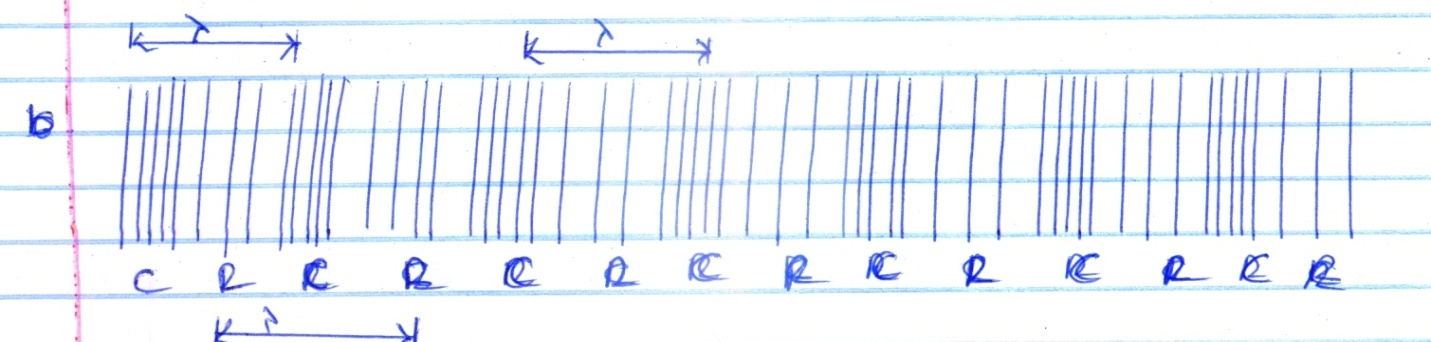 λ λ
b
C R C R C R C R C R C R C R
λ